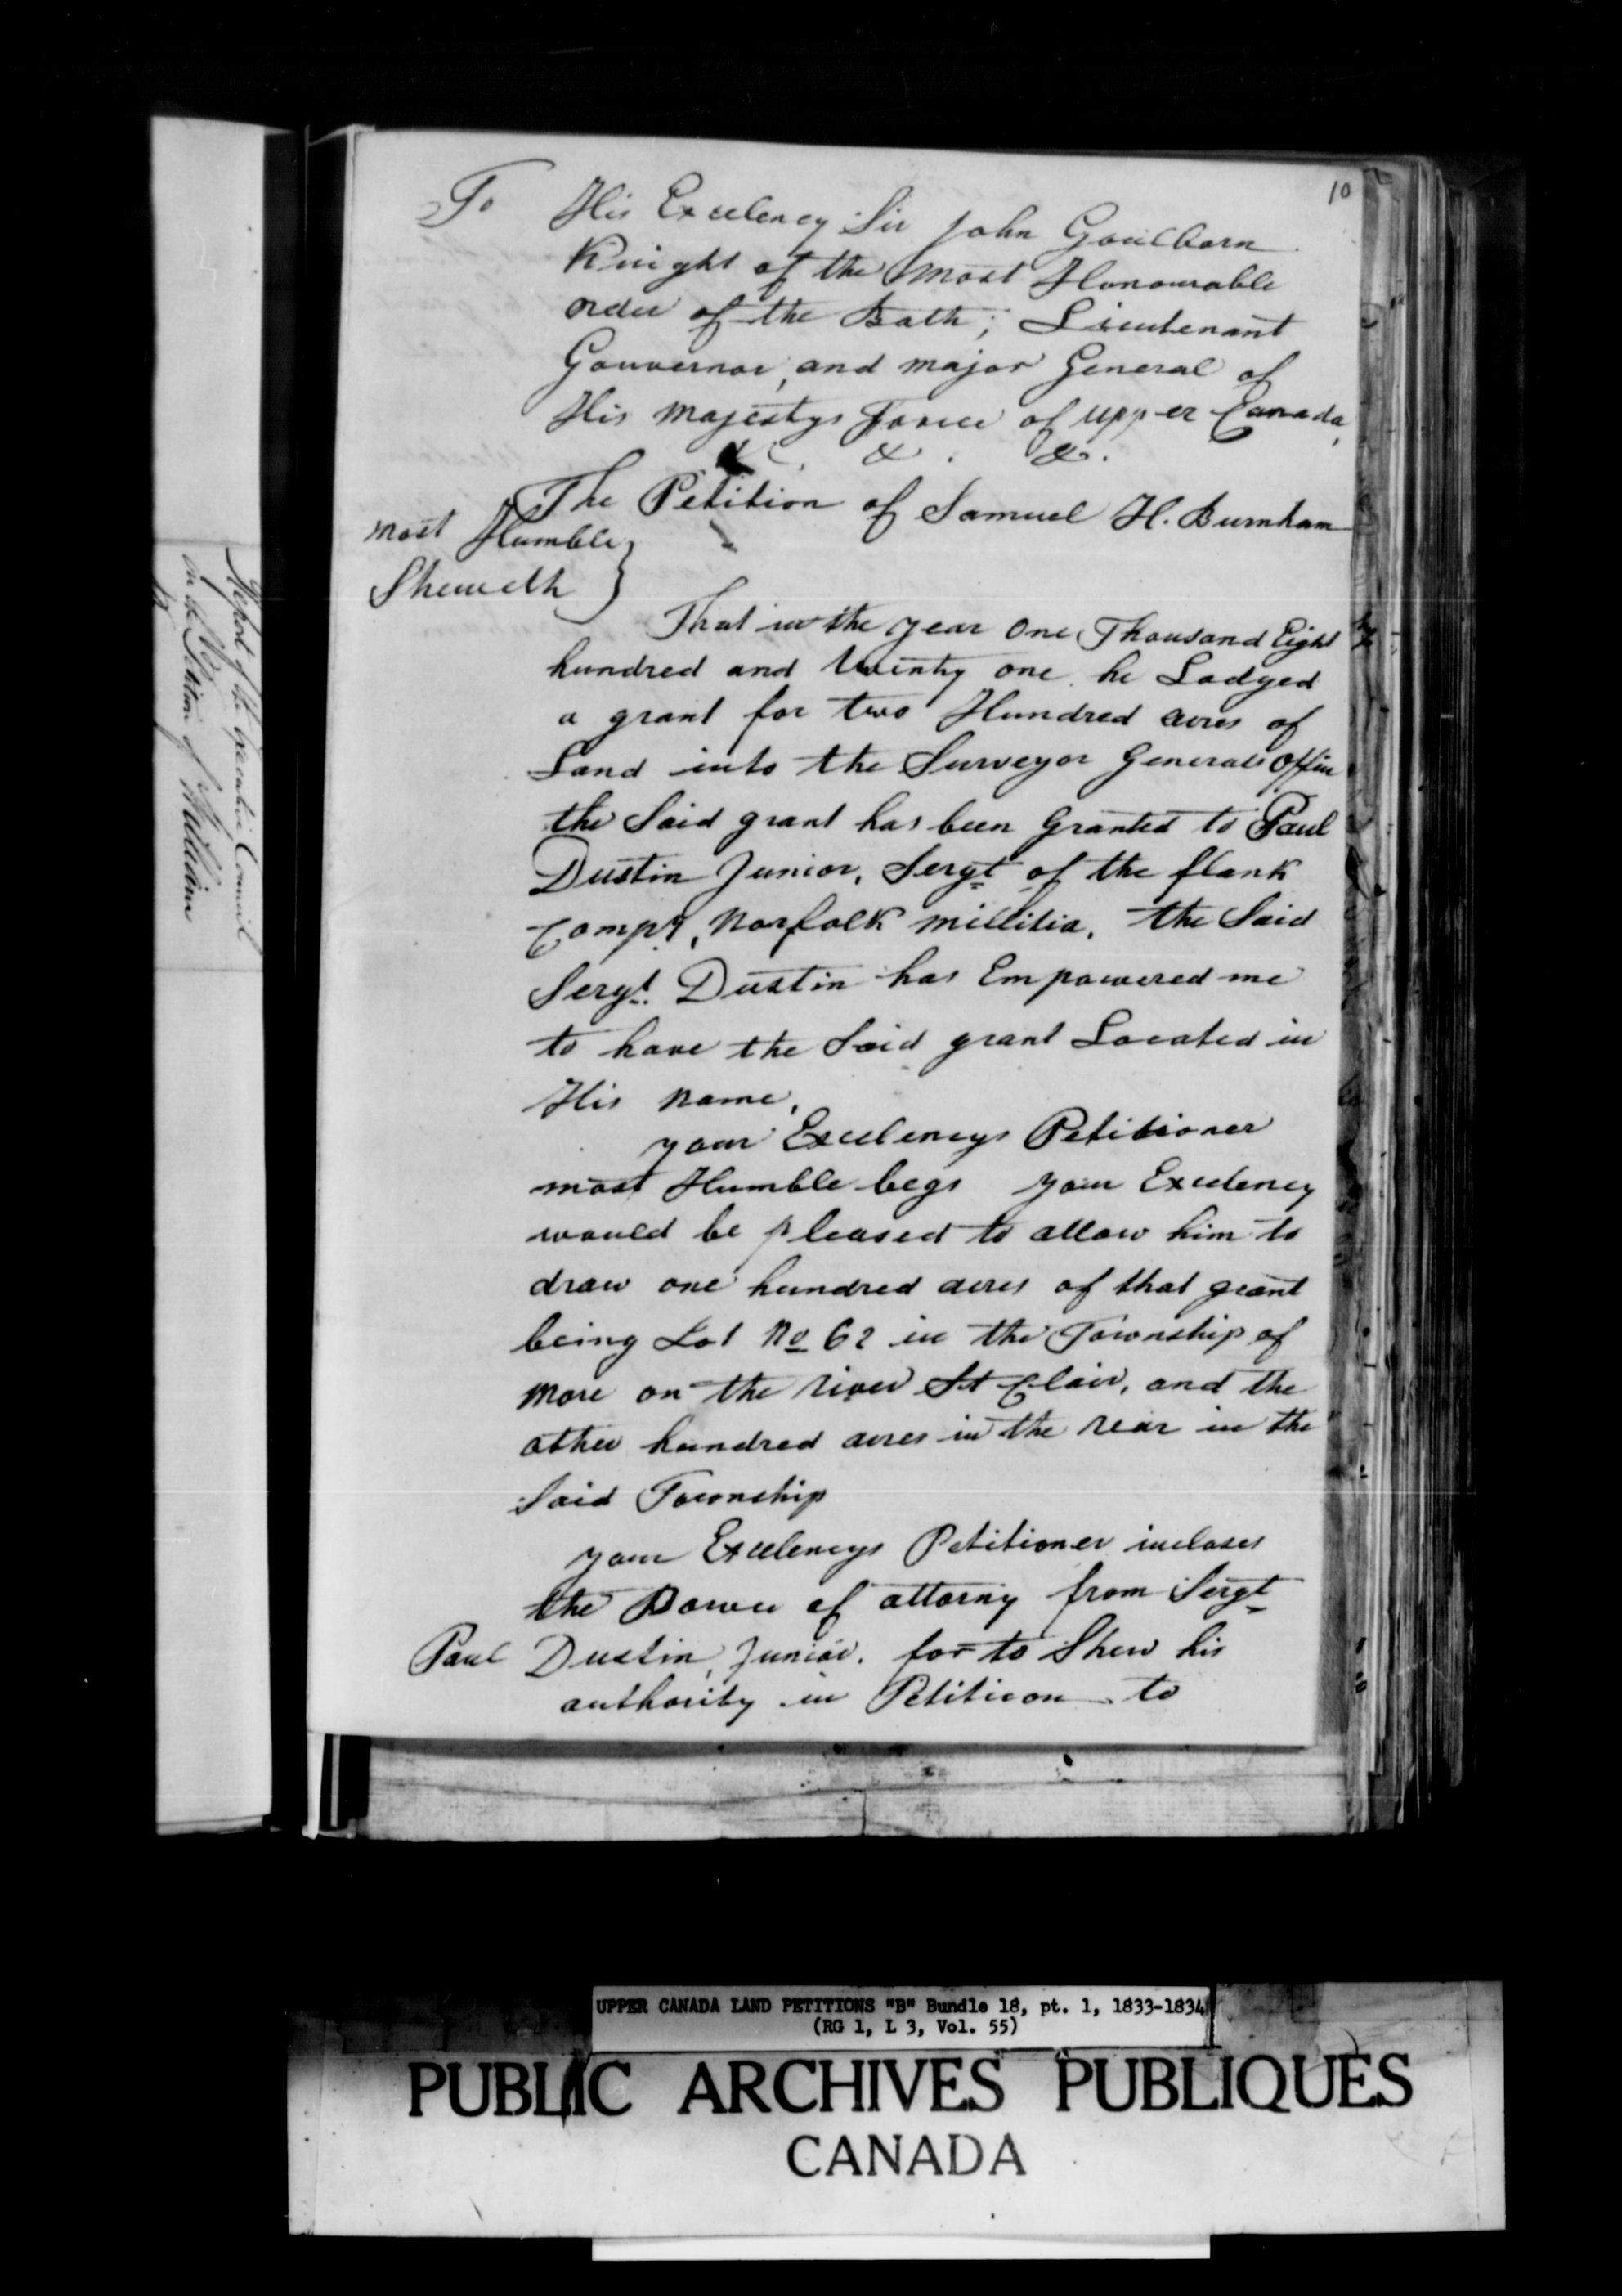 10
To His Excelency Sir John Goulborn
Knight of the Most Honourable
order of the Bath; Lieutenant
Gouvernor, and major General of
His Majestys Force of upper Canada,
&c. &. &.
The Petition of Samuel H. Burnham
most Humble
Sheweth }
That in the year One Thousand Eight
hundred and twenty one he Lodged
a grant for two Hundred acres of
Land into the Surveyor Generals Office
the Said grant has been Granted to Paul
Dustin Junior, Sergt of the flank
Compy, Norfolk Millitia, the Said
Sergt. Dustin has Empowered me
to have the Said grant Located in
His Name,
your Excelencys Petitioner
most Humble begs your Excelency
would be pleased to allow him to
draw one hundred acres of that grant
being Lot No 62 in the Township of
More on the river St Clair, and the
other hundred acres in the rear in the
Said Township
your Excelencys Petitioner incloses
the Power of attorny from Sergt
Paul Dustin, Junior. for to Shew his
authority in Petition to
Report of the Executive Council
on the Petition of William
UPPER CANADA LAND PETITIONS "B" Bundle 18, pt. 1, 1833-1834
(RG 1, L 3, Vol. 55)
PUBLIC ARCHIVES PUBLIQUES
CANADA